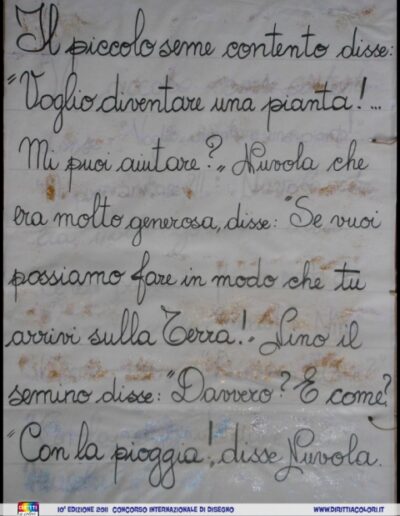 Il piccolo seme contento disse:
"Voglio diventare una pianta!...
Mi puoi aiutare?" Nuvola che
era molto generosa, disse: "Se vuoi
possiamo fare in modo che tu
arrivi sulla Terra!" Nino il
semino disse: "Davvero? E come?
"Con la pioggia!, disse Nuvola.
10° EDIZIONE 2011 CONCORSO INTERNAZIONALE DI DISEGNO WWW.DIRITTIACOLORI.IT